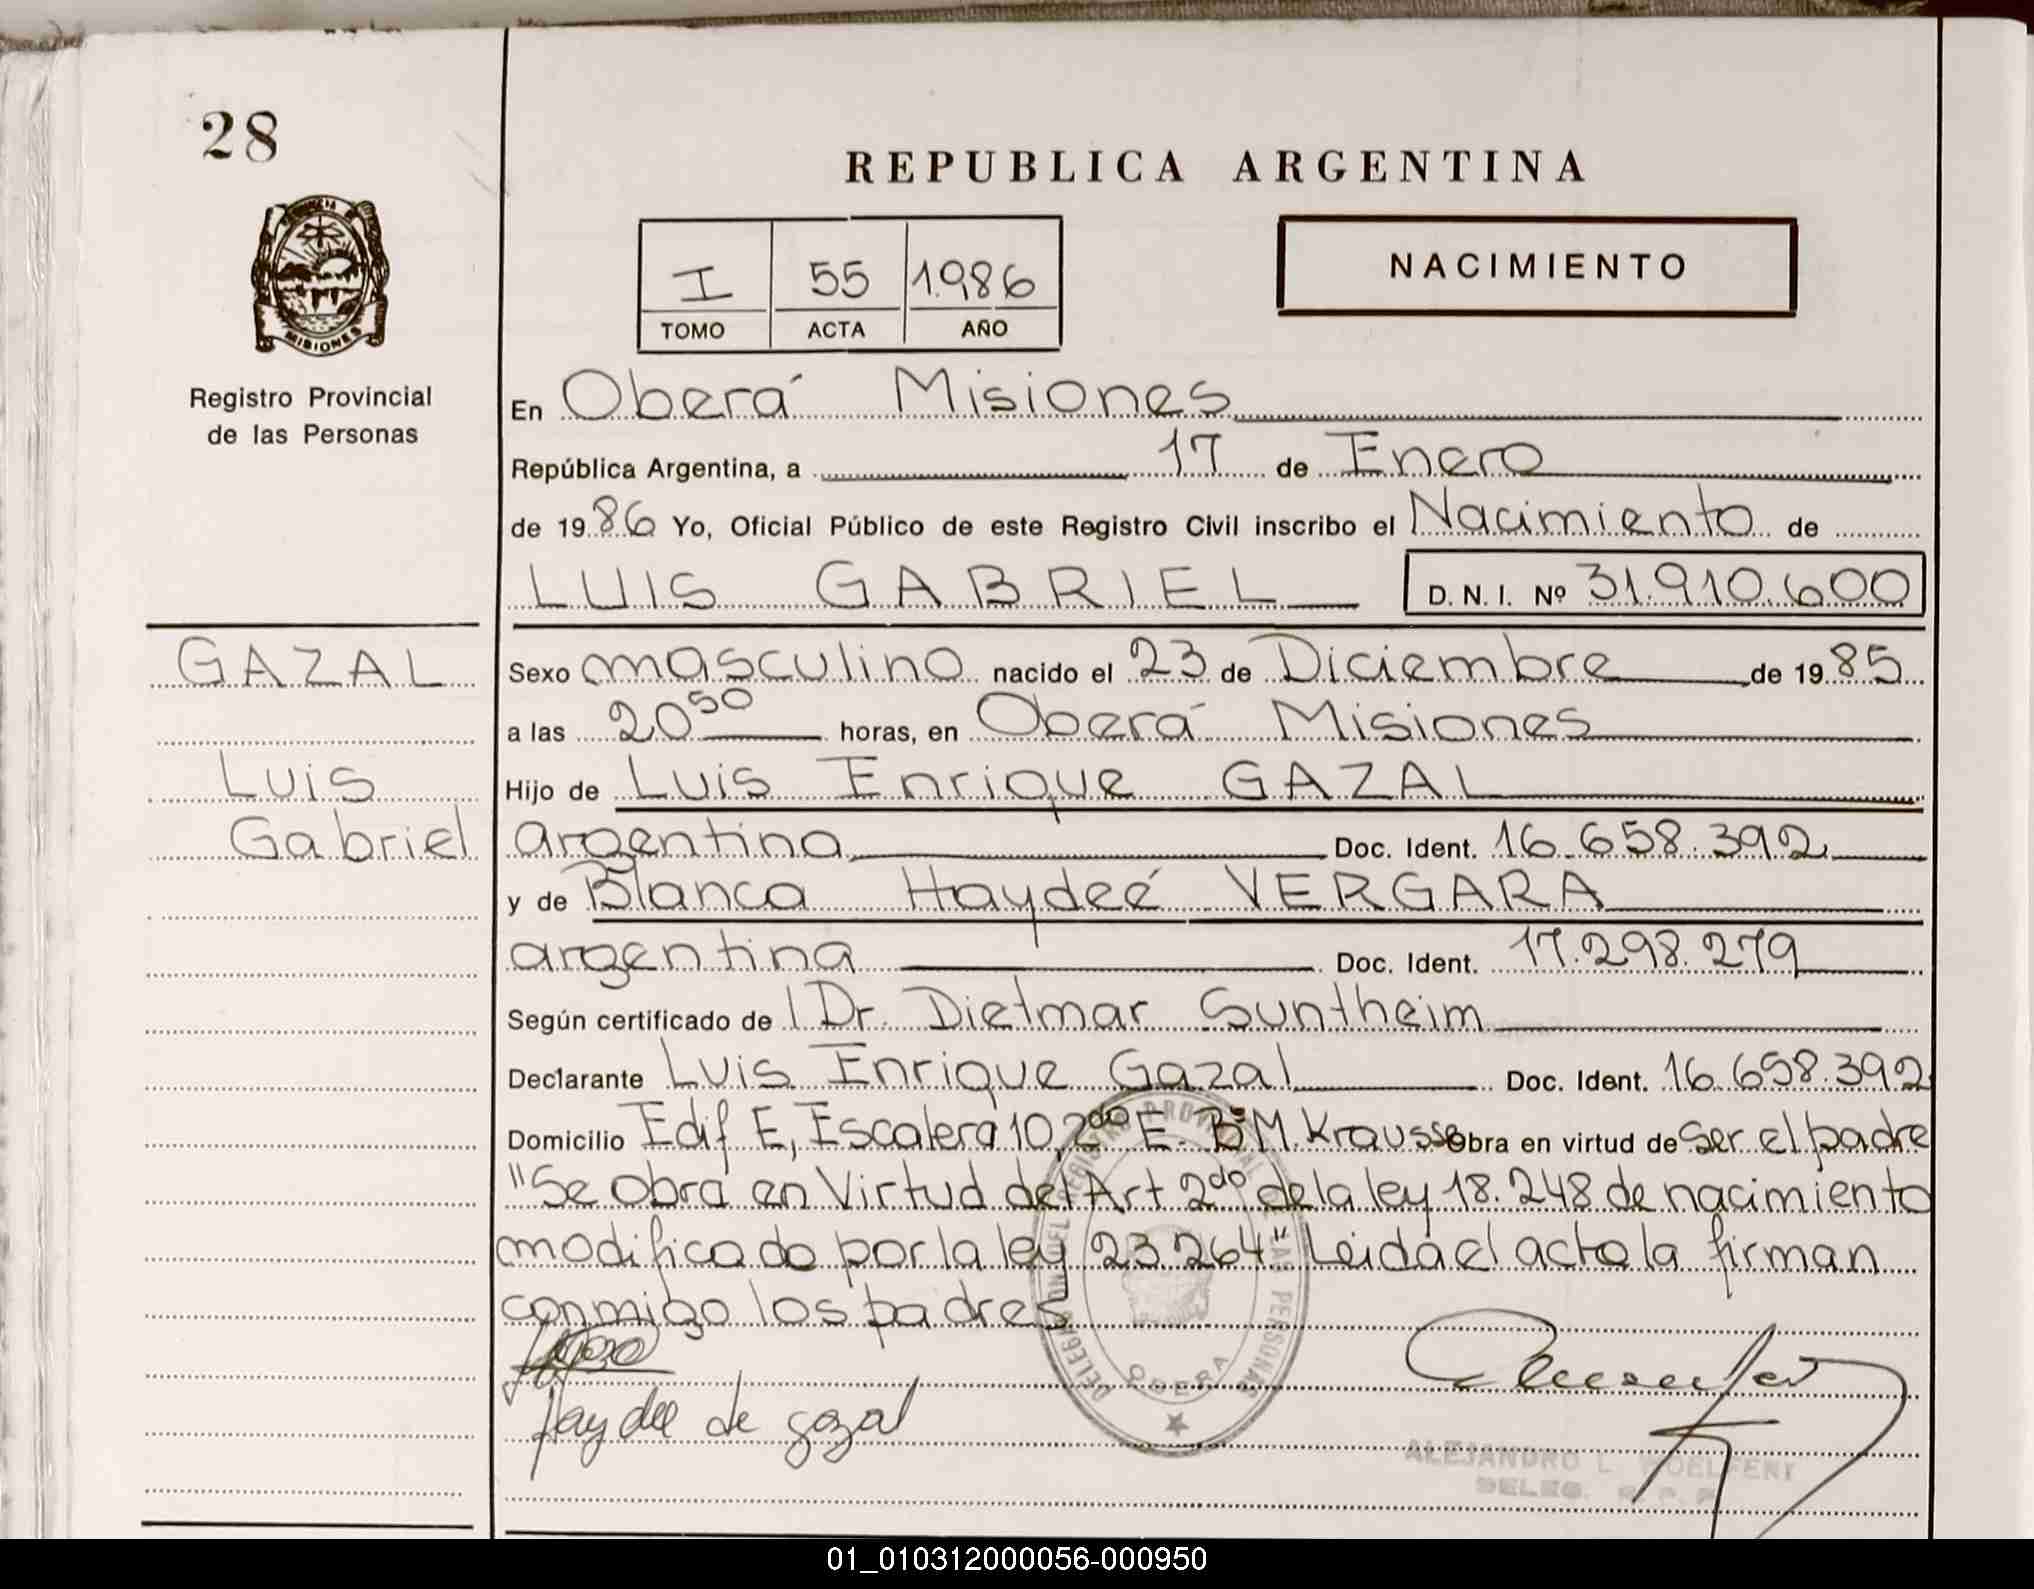 28
REPUBLICA ARGENTINA
I 55 1.986
TOMO ACTA AÑO
NACIMIENTO
MISIONES
Registro Provincial
de las Personas
En Oberá Misiones
República Argentina, a 17 de Enero
de 1986 Yo, Oficial Público de este Registro Civil inscribo el Nacimiento de
LUIS GABRIEL D. N. I. Nº 31.910.600
GAZAL
Luis
Gabriel
Sexo masculino nacido el 23 de Diciembre de 1985
a las 20 50 horas, en Oberá Misiones
Hijo de Luis Enrique GAZAL
argentina Doc. Ident. 16.658.392
y de Blanca Haydeé VERGARA
argentina Doc. Ident. 17.298.279
Según certificado de Dr. Dietmar Suntheim
Declarante Luis Enrique Gazal Doc. Ident. 16.658.392
Domicilio Edif E, Escalera 10, 2do E. Bº M. Krausse Obra en virtud de Ser el padre
"Se obra en Virtud del Art 2do de la ley 18.248 de nacimiento
modificado por la ley 23.264" Leida el acta la firman
conmigo los padres
Haydee de gazal
DELEGACION DEL REGISTRO PROVINCIAL DE LAS PERSONAS
OBERA
ALEJANDRO L.
DELEG.
01_010312000056-000950